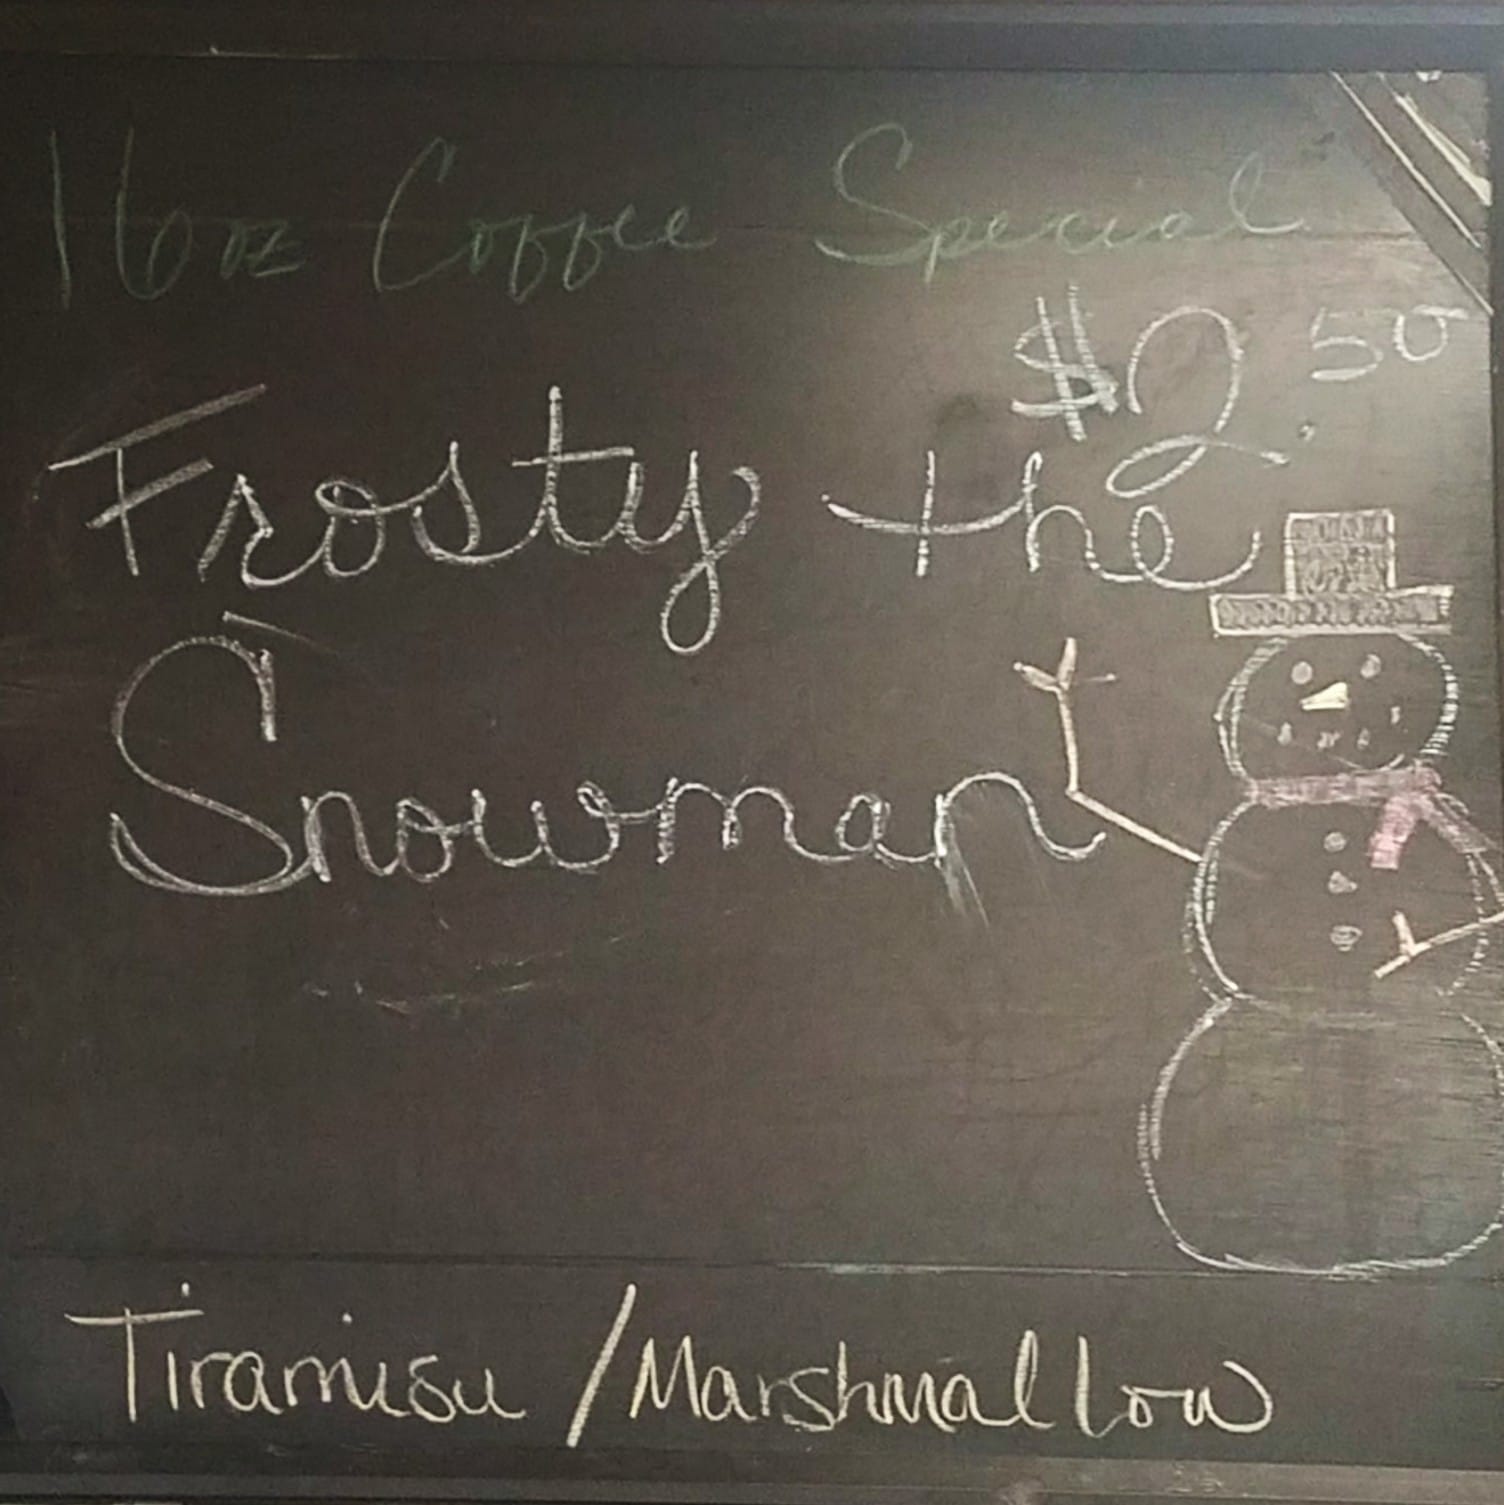 16oz Coffee Special
$2.50
Frosty the
Snowman
Tiramisu / Marshmallow